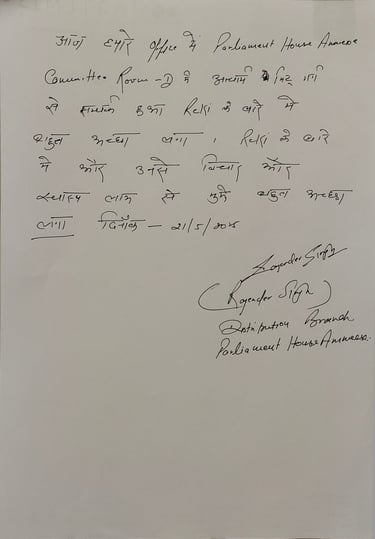 आज हमारे office में Parliament House Annexe
Committee Room-D में आचार्य जी
से सम्पर्क हुआ Reiki के बारे में
बहुत अच्छा लगा। Reiki के बारे
में और उनसे विचार और
स्वास्थ्य लाभ से मुझे बहुत अच्छा
लगा दिनाँक - 21/5/2025
Rajender Singh
(Rajender Singh)
Distribution Branch
Parliament House Annexe.